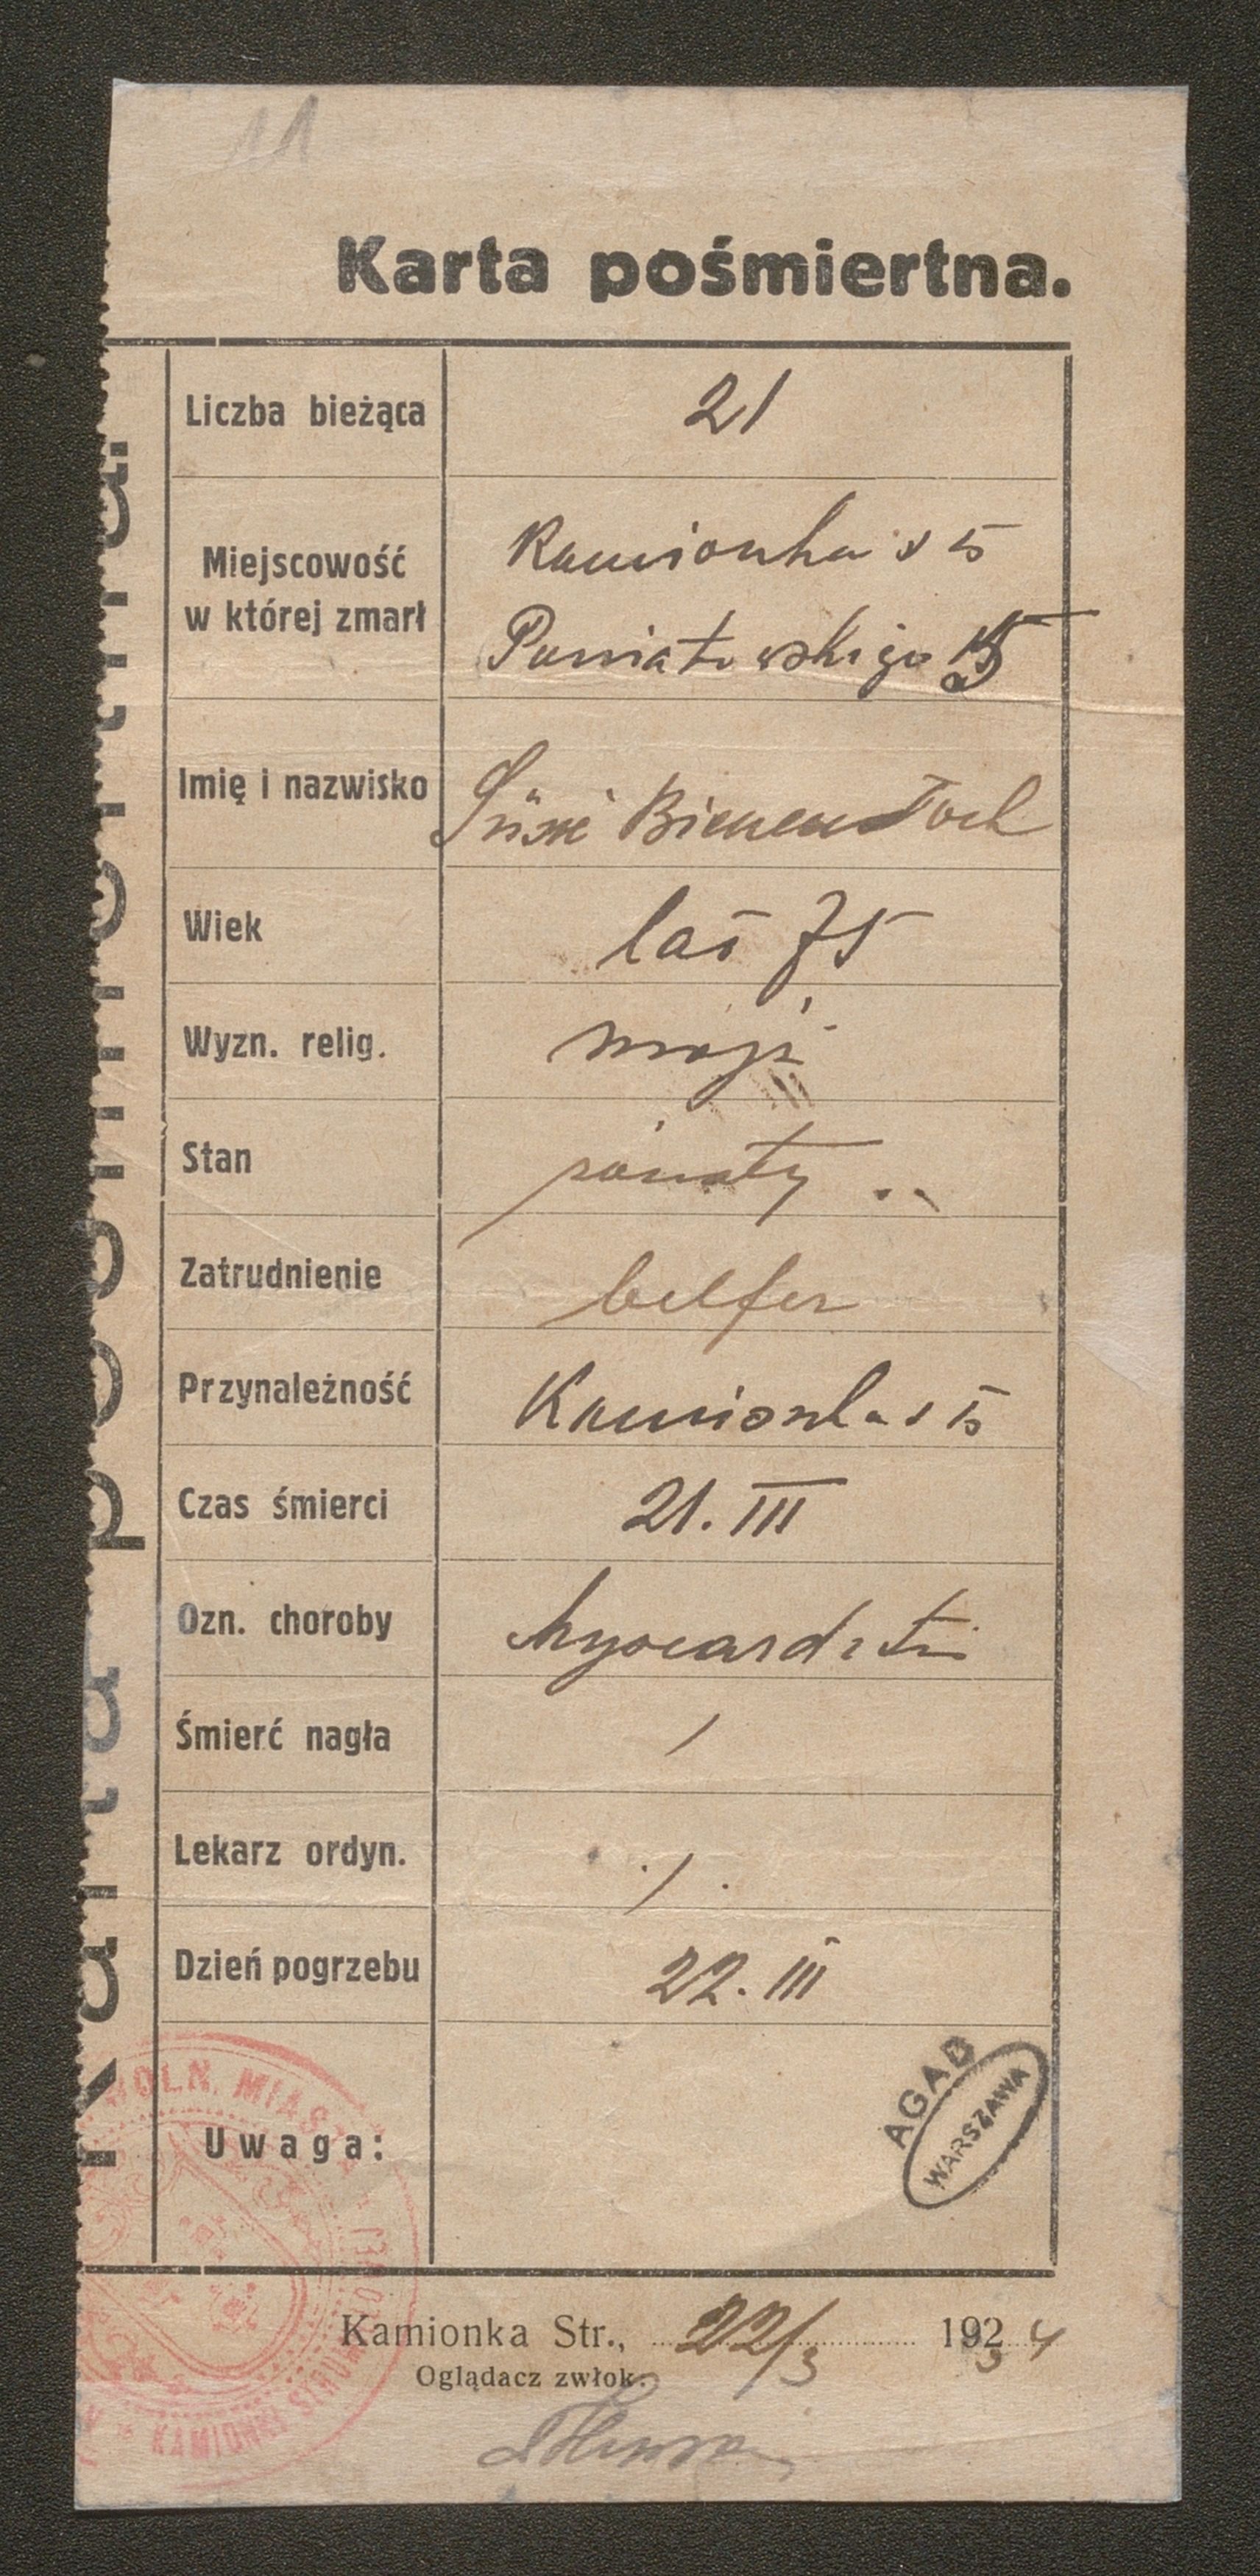 11
Karta pośmiertna.
Liczba bieżąca 21
Miejscowość w której zmarł Kamionka s t
Poniatowskiego 15
Imię i nazwisko Süssie Bienenstock
Wiek lat 75
Wyzn. relig. mojż
Stan żonaty
Zatrudnienie belfer
Przynależność Kamionka s t
Czas śmierci 21. III
Ozn. choroby myocarditis
Śmierć nagła /
Lekarz ordyn. ./.
Dzień pogrzebu 22. III
Uwaga:
AGAD
WARSZAWA
WOLN. MIAST
KAMIONKI STRUM
Kamionka Str., 22/3 1934
Oglądacz zwłok:
Karta pośmiertna.